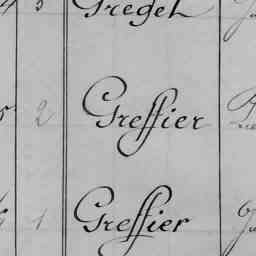 3 Gregel
5 2 Greffier
1 Greffier